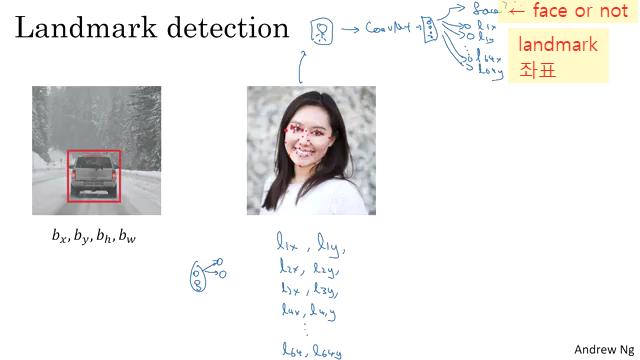 Landmark detection
ConvNet
face?
← face or not
l1x
l1y
⋮
l64x
l64y
landmark
좌표
bx, by, bh, bw
l1x, l1y,
l2x, l2y,
l3x, l3y,
l4x, l4y
⋮
l64, l64y
Andrew Ng